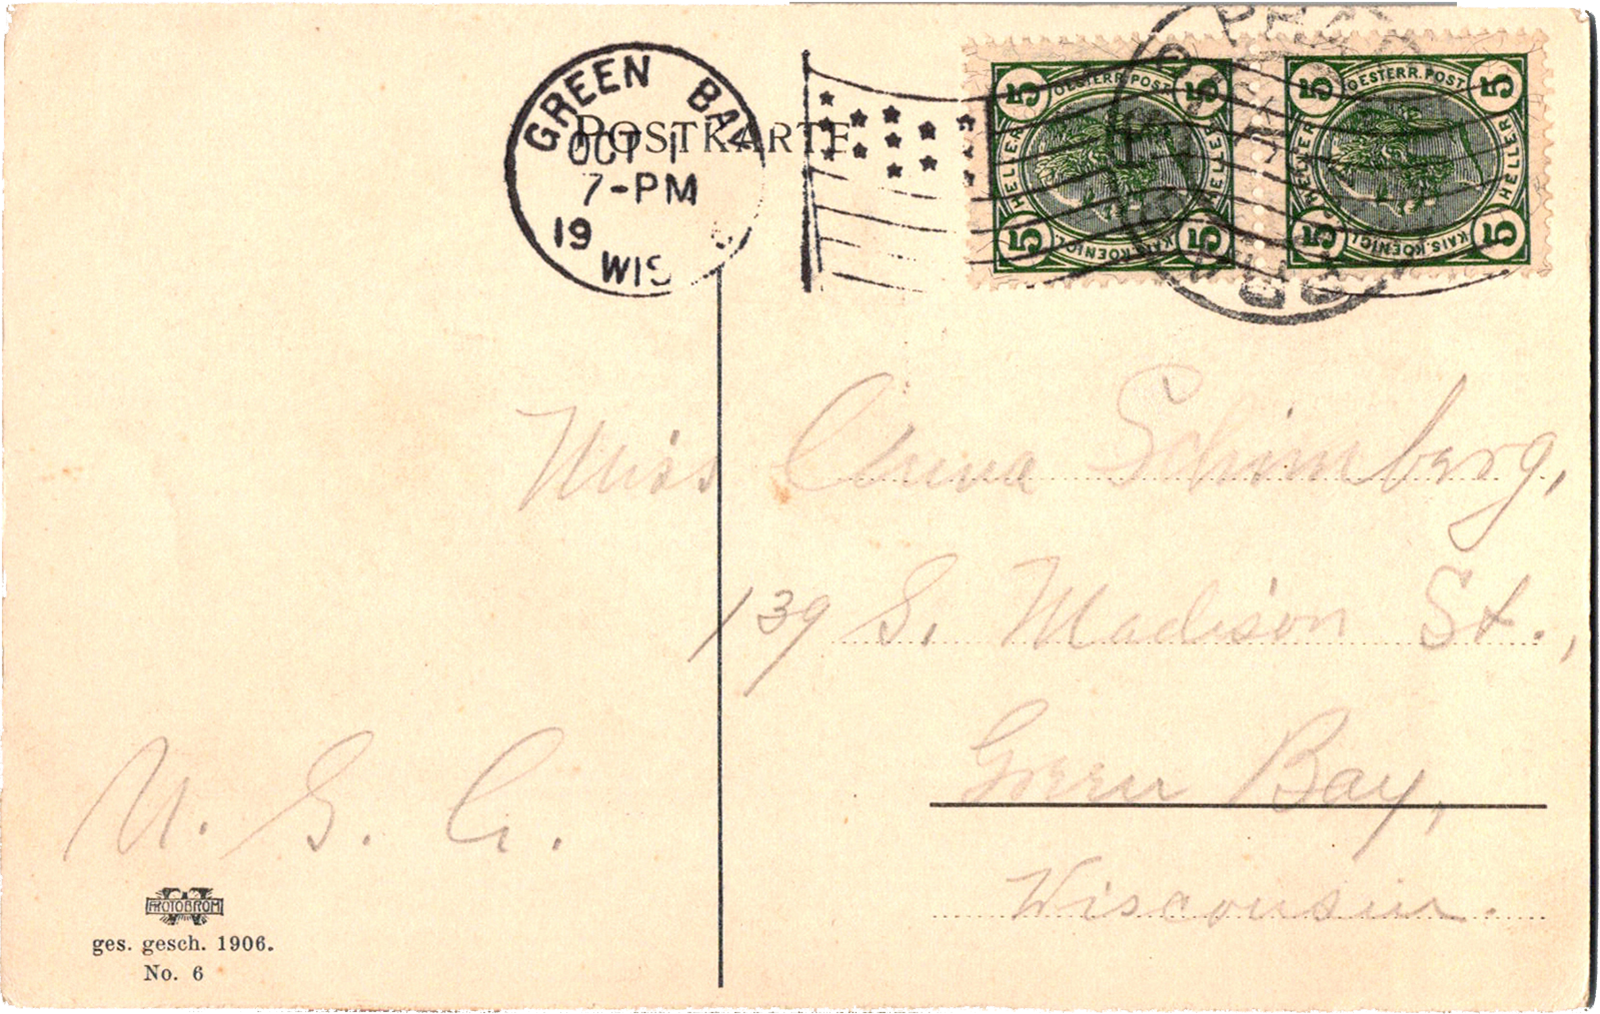 GREEN BAY
OCT 1
7-PM
19
WIS
POSTKARTE
5 OESTERR. POST 5
HELLER HELLER
5 KAIS. KOENIGL. 5
5 OESTERR. POST 5
HELLER HELLER
5 KAIS. KOENIGL. 5
Miss Anna Schimberg,
139 S. Madison St.,
Green Bay,
Wisconsin.
U. S. A.
PHOTOBROM
ges. gesch. 1906.
No. 6